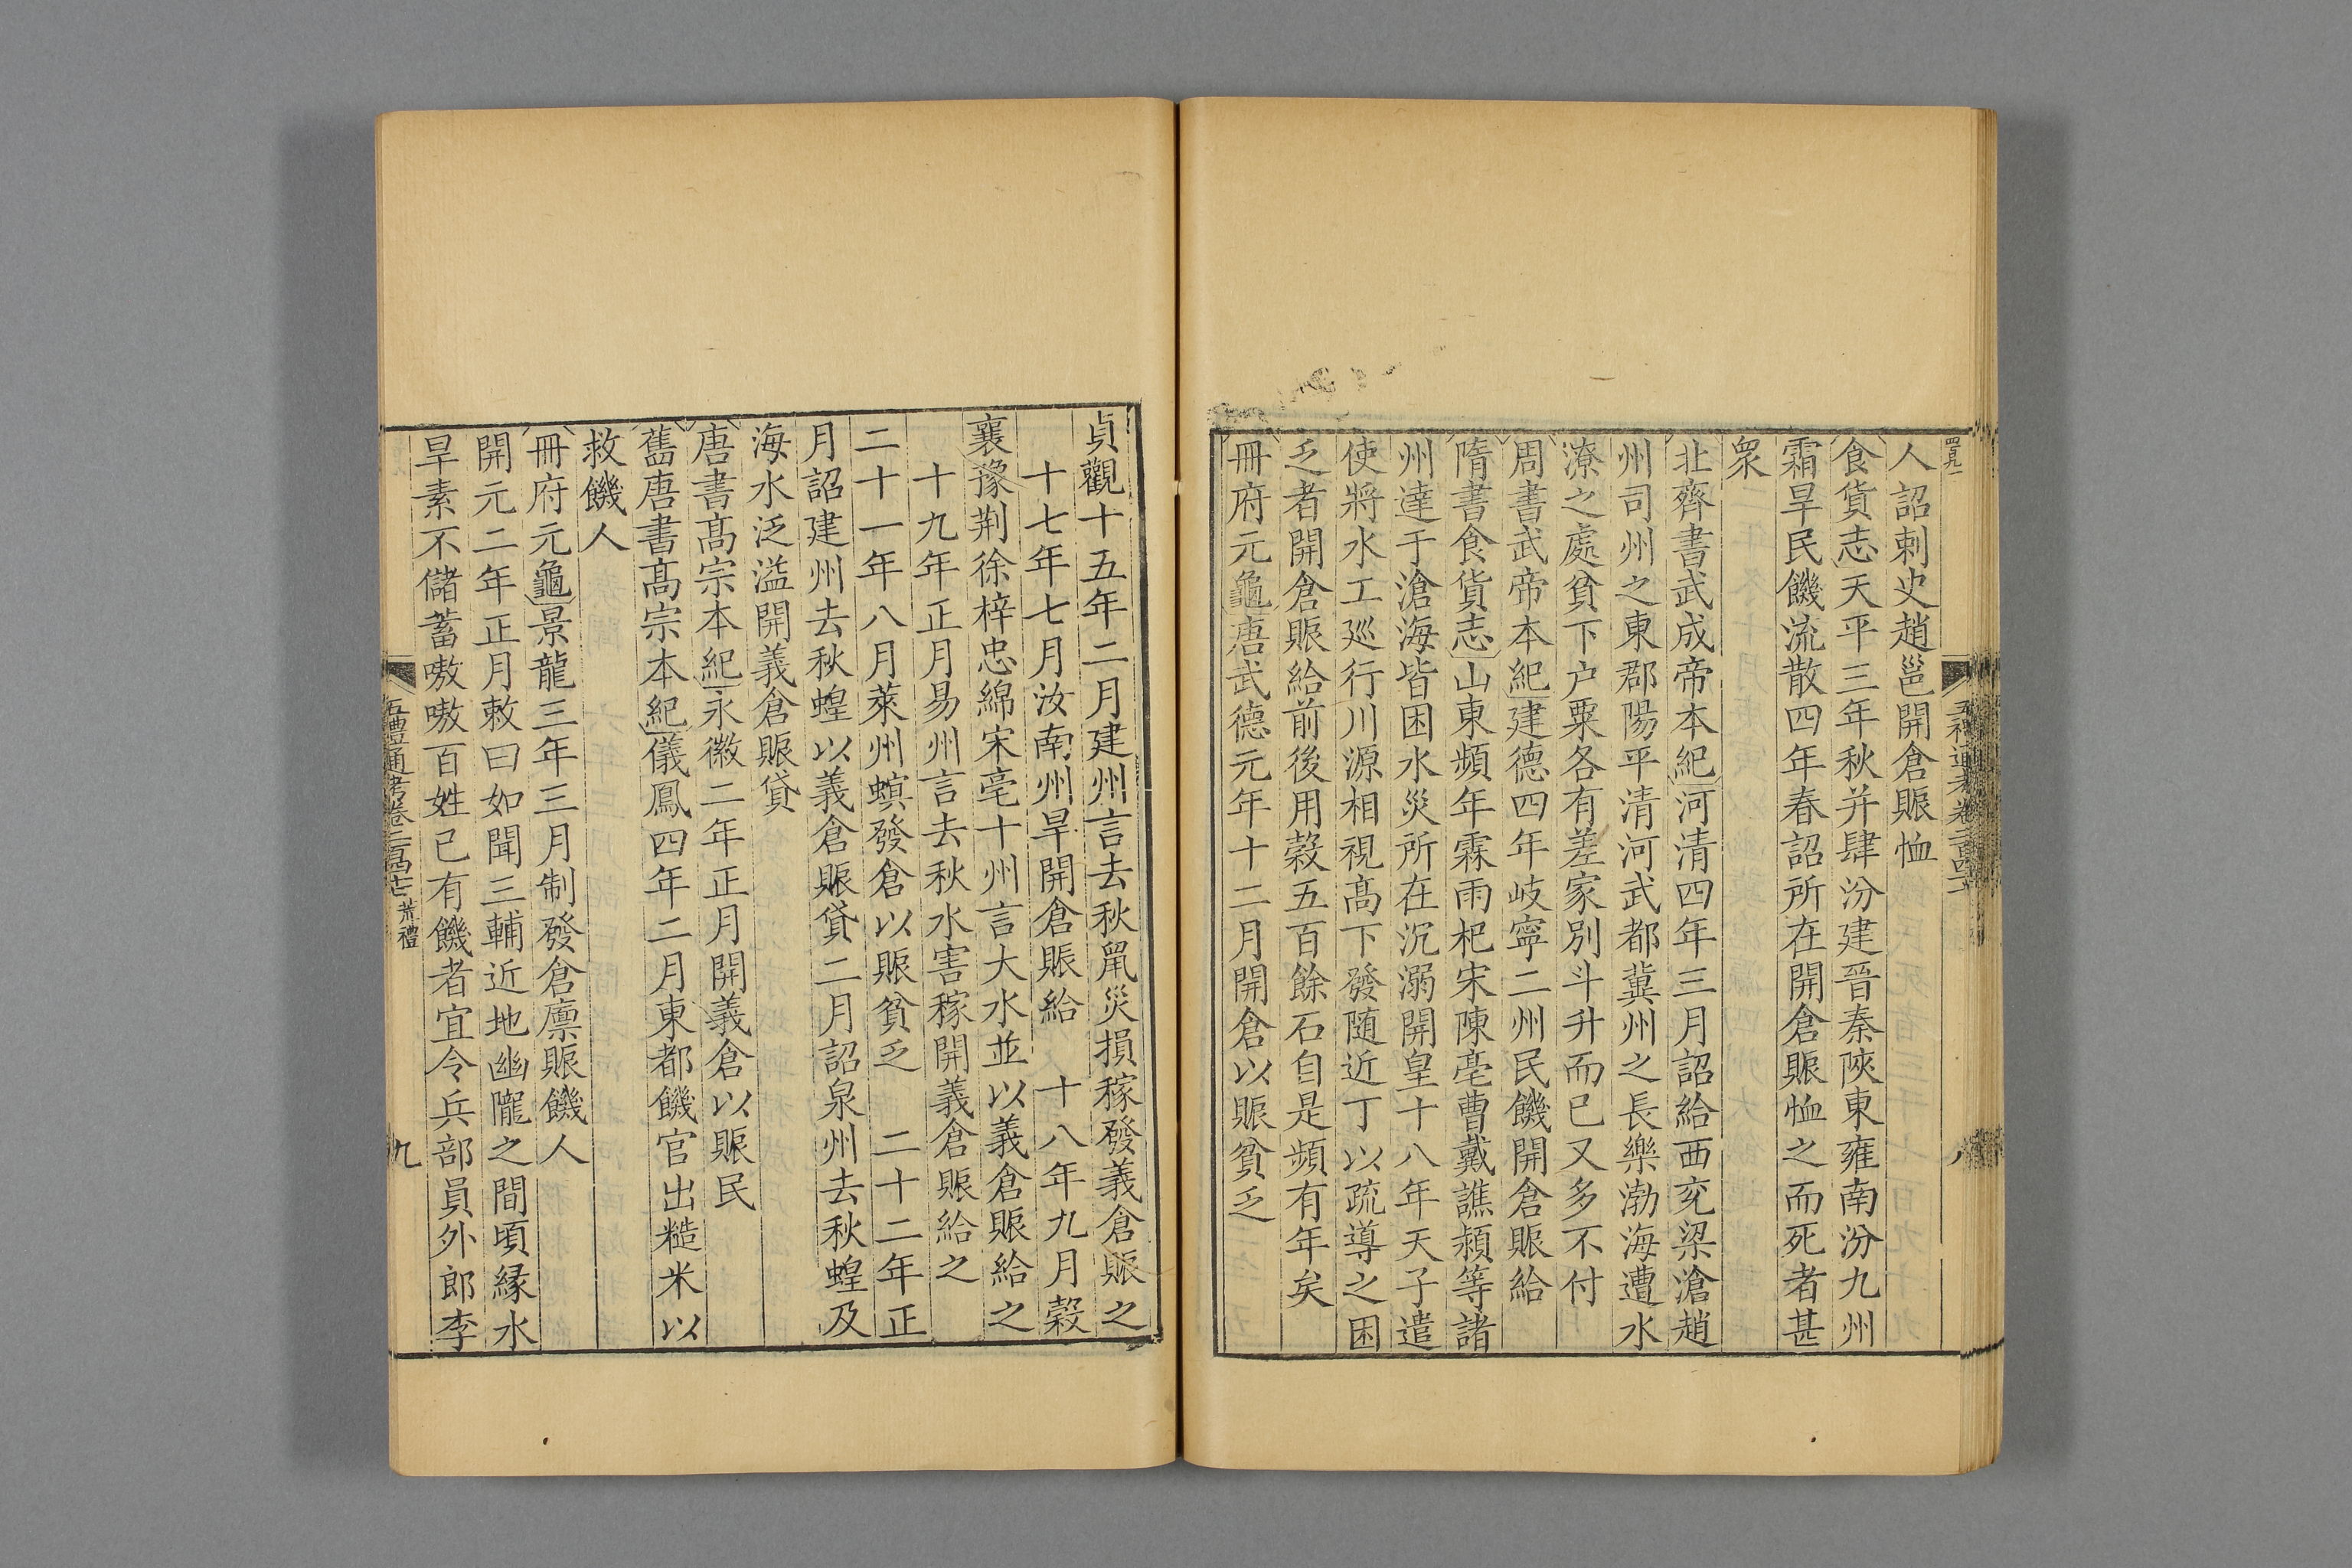 人詔刺史趙邕開倉賑恤
食貨志天平三年秋并肆汾建晉秦陜東雍南汾九州
霜旱民饑流散四年春詔所在開倉賑恤之而死者甚
衆
北齊書武成帝本紀河清四年三月詔給西兖梁滄趙
州司州之東郡陽平清河武都冀州之長樂渤海遭水
潦之處貧下户粟各有差家別斗升而已又多不付
周書武帝本紀建德四年岐寧二州民饑開倉賑給
隋書食貨志山東頻年霖雨杞宋陳亳曹戴譙潁等諸
州達于滄海皆困水災所在沉溺開皇十八年天子遣
使將水工廵行川源相視髙下發随近丁以疏導之困
乏者開倉賑給前後用榖五百餘石自是頻有年矣
冊府元龜唐武德元年十二月開倉以賑貧乏
貞觀十五年二月建州言去秋鼠災損稼發義倉賑之
十七年七月汝南州旱開倉賑給 十八年九月榖
襄豫荆徐梓忠綿宋亳十州言大水並以義倉賑給之
十九年正月易州言去秋水害稼開義倉賑給之
二十一年八月萊州螟發倉以賑貧乏 二十二年正
月詔建州去秋蝗以義倉賑貸二月詔泉州去秋蝗及
海水泛溢開義倉賑貸
唐書髙宗本紀永徽二年正月開義倉以賑民
舊唐書髙宗本紀儀鳳四年二月東都饑官出糙米以
救饑人
冊府元龜景龍三年三月制發倉廪賑饑人
開元二年正月敕曰如聞三輔近地幽隴之間頃縁水
旱素不儲蓄嗷嗷百姓已有饑者宜令兵部員外郎李
五禮通考卷二百四十七 荒禮
九